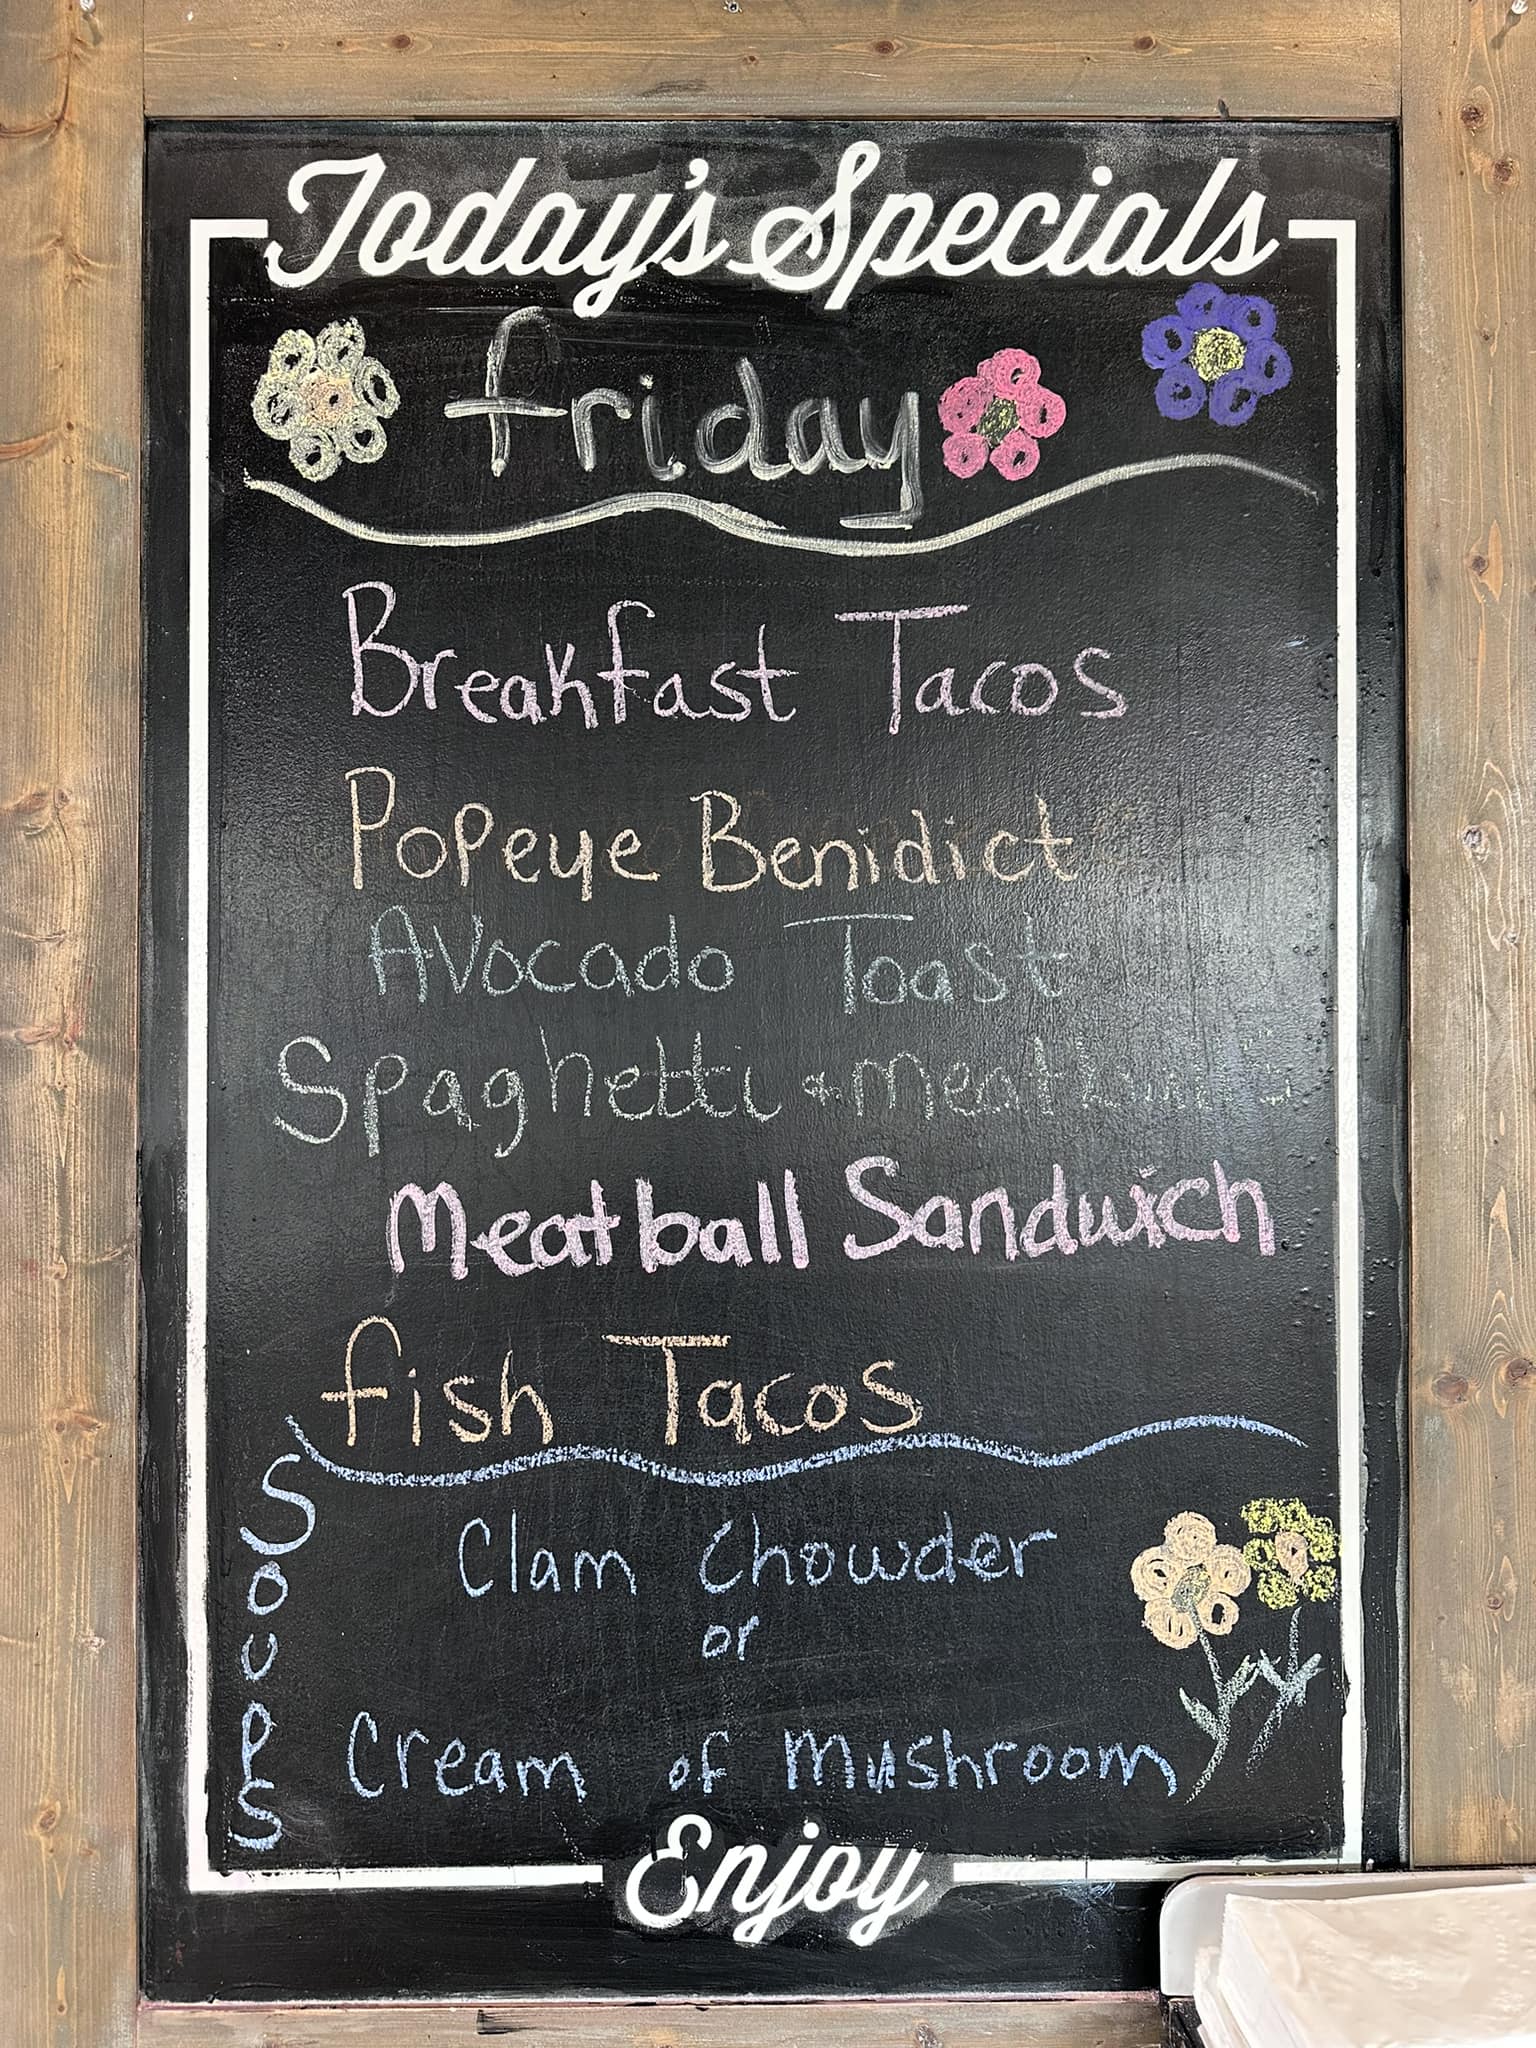 Today's Specials
friday
Breakfast Tacos
Popeye Benidict
Avocado Toast
Spaghetti & meatballs
Meatball Sandwich
fish Tacos
Soups
Clam Chowder
or
Cream of Mushroom
Enjoy